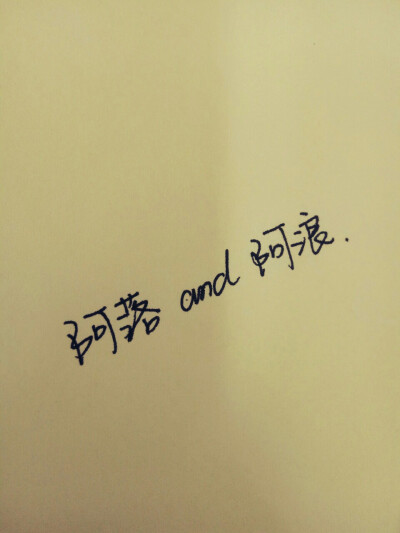 阿落 and 阿浪.